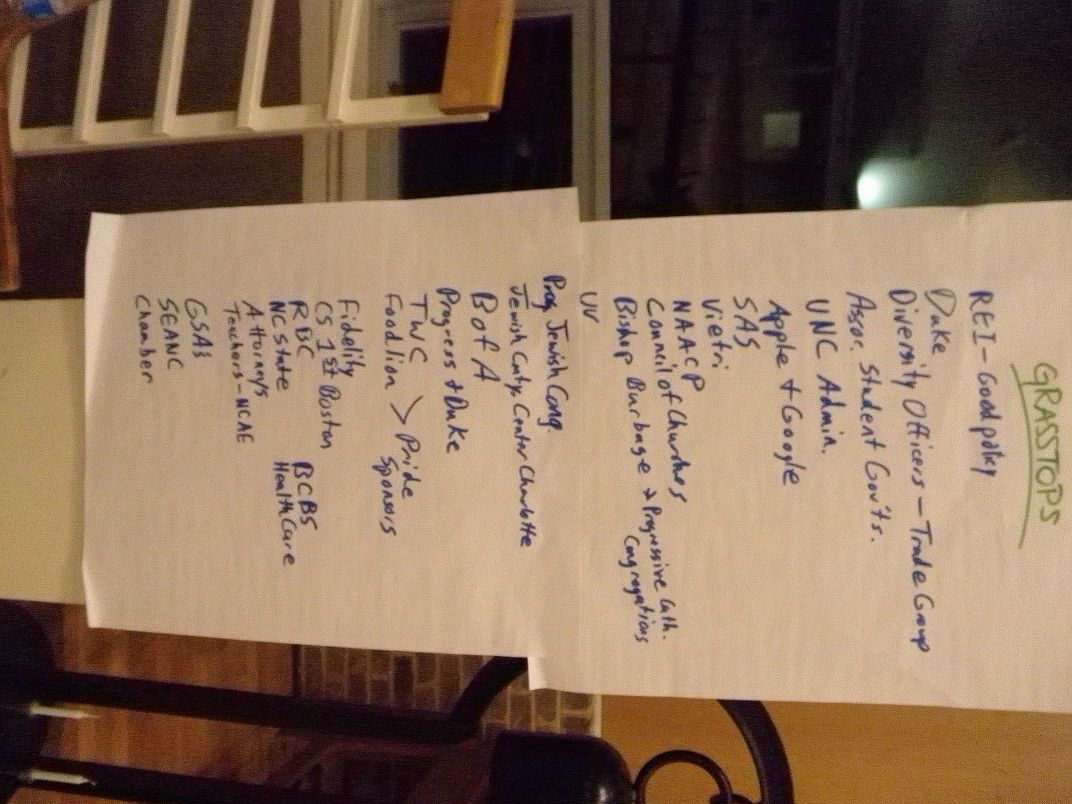 GRASSTOPS
REI - Good policy
Duke
Diversity Officers - Trade Group
Assoc. Student Gov'ts.
UNC Admin.
Apple + Google
SAS
Vietri
NAACP
Council of Churches
Bishop Burbage → Progressive Cath. Congregations
UU
Prog. Jewish Cong.
Jewish Cmty. Center Charlotte
B of A
Progress + Duke
TWC
Foodlion > Pride Sponsors
Fidelity
CS 1st Boston
RBC BCBS
NC State HealthCare
Attornays
Teachers - NCAE
GSAs
SEANC
Chamber